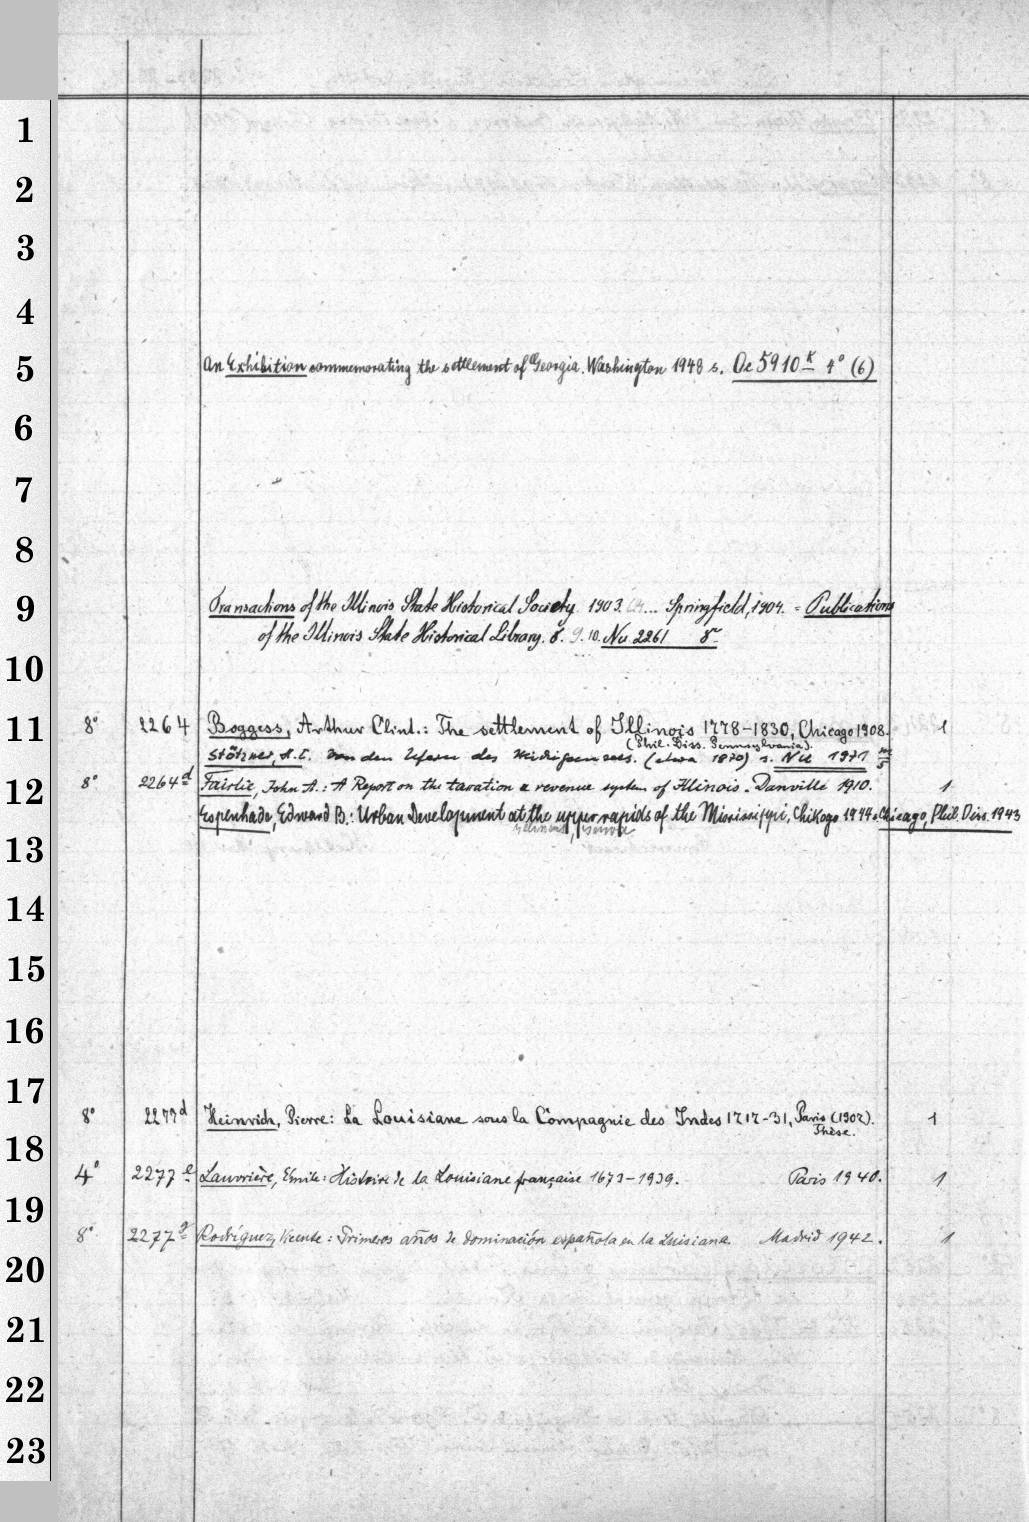 1
2
3
4
5 An Exhibition commemorating the settlement of Georgia. Washington 1948 s. Oc 5910 K 4° (6)
6
7
8
9 Transactions of the Illinois State Historical Society 1903. ... Springfield, 1904. = Publications
of the Illinois State Historical Library. 8. 9. 10. Nu 2261 8°
10
11 8° 2264 Boggess, Arthur Clint.: The settlement of Illinois 1778-1830, Chicago 1908. 1
(Phil. Diss. Pennsylvania).
Stötzner, A. C. Von den Ufern des (etwa 1870) s. Nu 1971 m 8
12 8° 2264d Fairlie, John A.: A Report on the taxation & revenue system of Illinois. Danville 1910. 1
Espenhade, Edward B.: Urban Development at the upper rapids of the Mississippi, Chikago 1944 = Chicago, Phil. Diss. 1943
13
14
15
16
17
8° 2277d Heinrich, Pierre: La Louisiane sous la Compagnie des Indes 1717-31, Paris (1907). 1
Thèse.
18 4° 2277e Lauvrière, Emile: Histoire de la Louisiane française 1673-1939. Paris 1940. 1
19
8° 2277g Rodríguez, Vicente: Primeros años de dominación española en la Luisiana Madrid 1942. 1
20
21
22
23